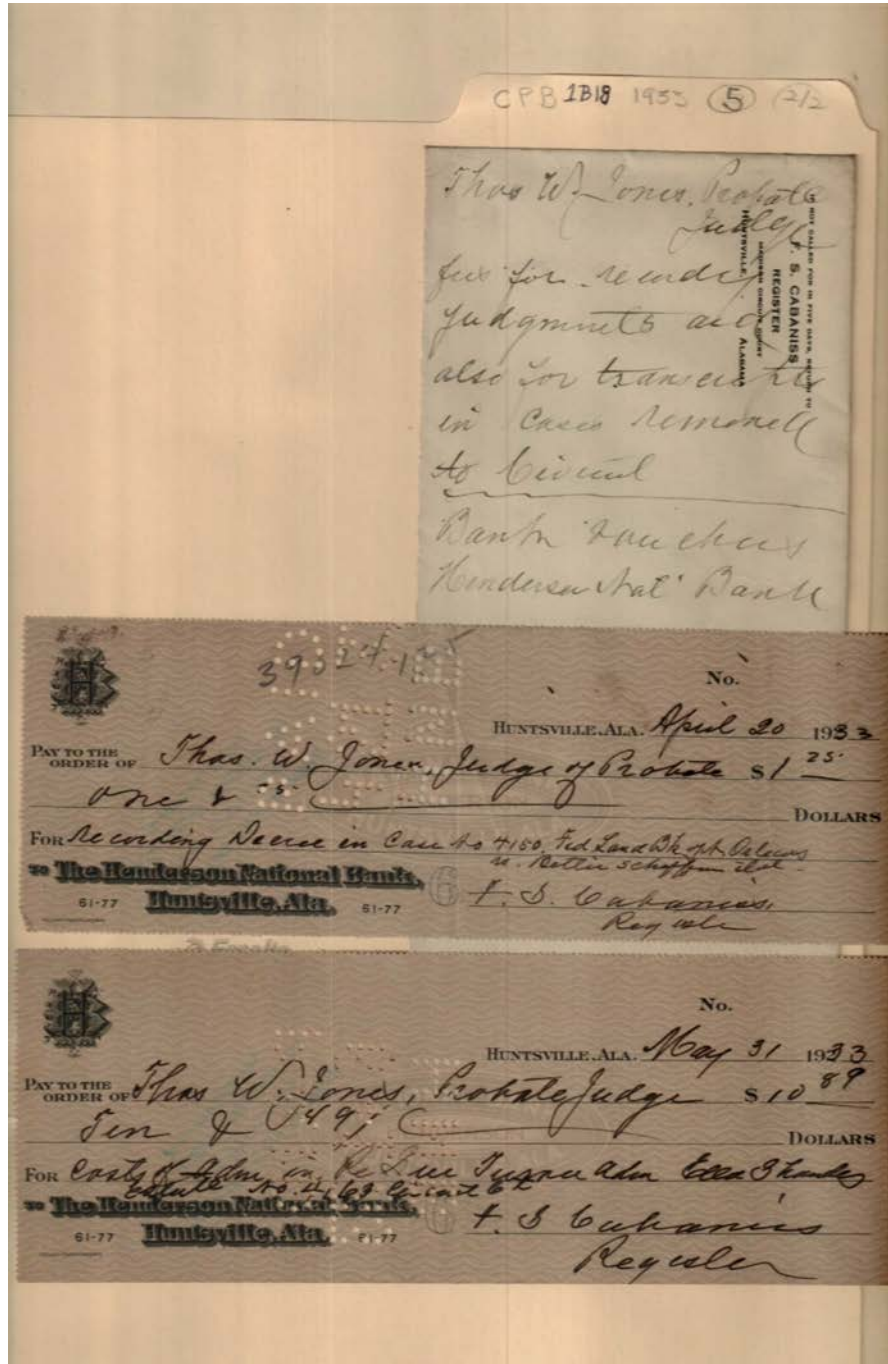 CPB 1B18 1933 5 (2/2
Thos W. Jones, Probate
Judge
fees for recordg
Judgments and
also for transcripts
in cases removed
to Circuit
Bank Vouchers
Henderson Nat' Bank
IF NOT CALLED FOR IN FIVE DAYS, RETURN TO
F. S. CABANISS
REGISTER
MADISON CIRCUIT COURT
HUNTSVILLE, ALABAMA
No.
HUNTSVILLE, ALA. April 20 1933
PAY TO THE
ORDER OF Thos. W. Jones, Judge of Probate $1 25
One & DOLLARS
FOR Recording Decree in Case No 4150, Fed Land Bk of
Bettie et al
TO The Henderson National Bank,
61-77 Huntsville, Ala. 61-77
F. S. Cabaniss,
Register
No.
HUNTSVILLE, ALA. May 31 1933
PAY TO THE
ORDER OF Thos W. Jones, Probate Judge $10 89
Ten & DOLLARS
FOR Costs of Adm in Re Sue Turner Adm Ella
Estate No.
TO The Henderson National Bank,
61-77 Huntsville, Ala. 61-77
F. S Cabaniss
Register